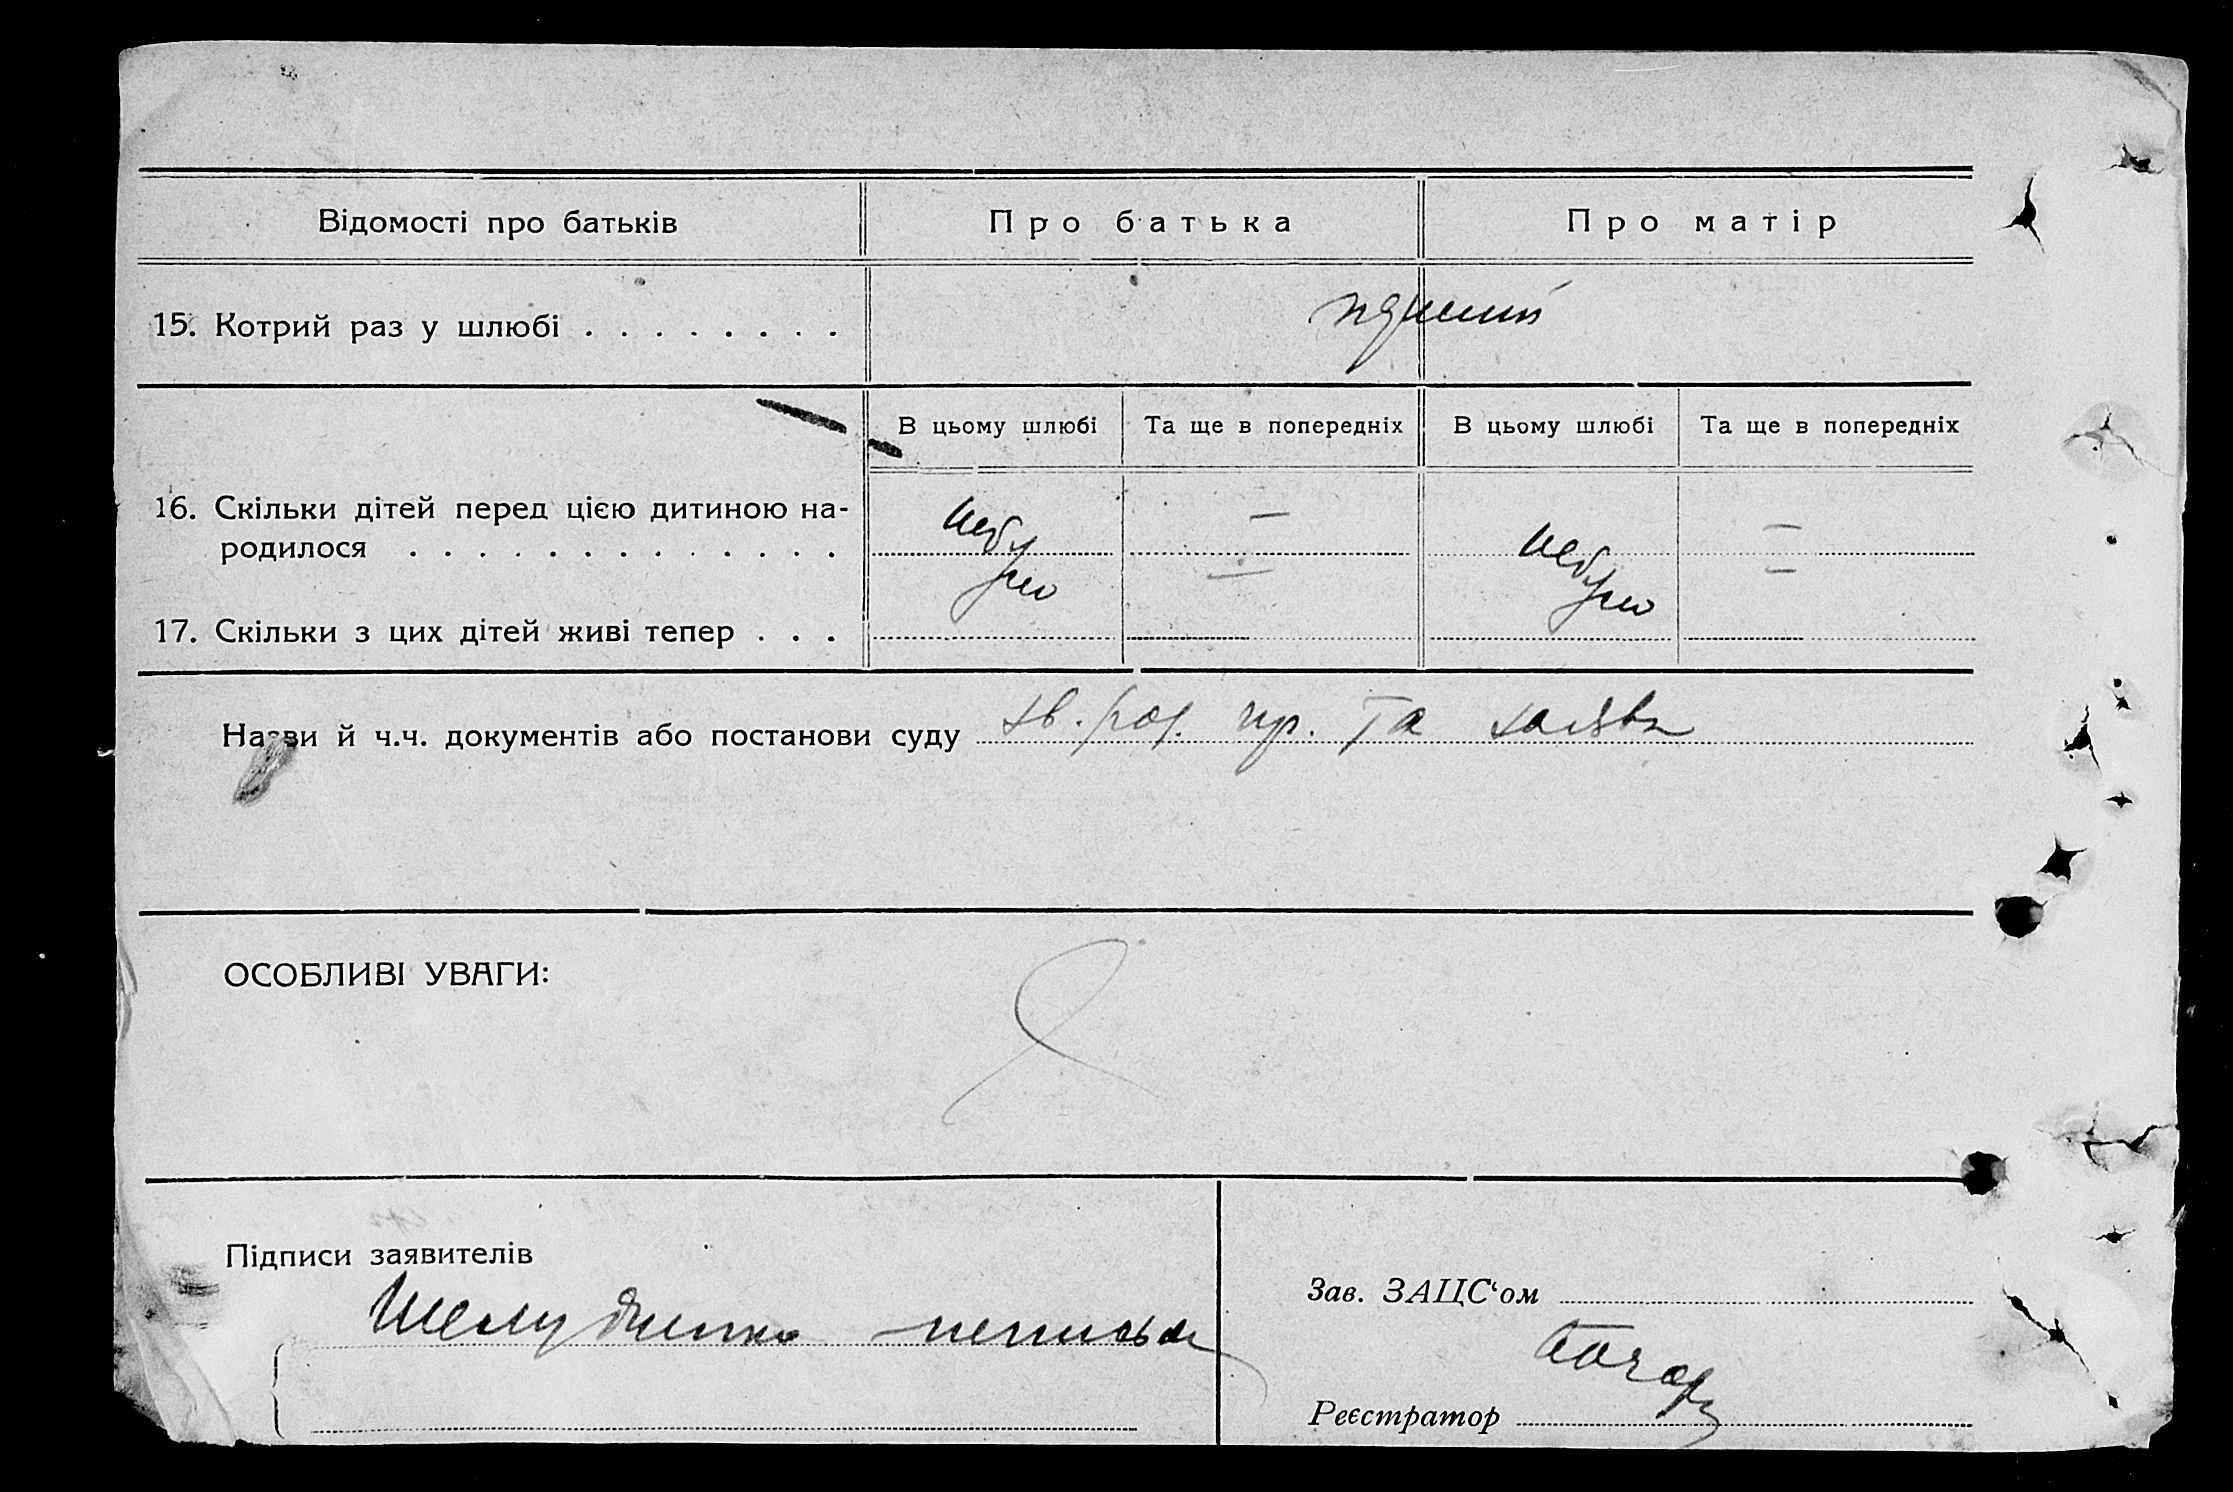 Відомості про батьків
Про батька
Про матір
15. Котрий раз у шлюбі . . . . . . . .
В цьому шлюбі
Та ще в попередніх
В цьому шлюбі
Та ще в попередніх
16. Скільки дітей перед цією дитиною на-
родилося . . . . . . . . . . . . .
—
—
небу
ло
небуло
—
—
17. Скільки з цих дітей живі тепер . . .
Назви й ч.ч. документів або постанови суду та заява
ОСОБЛИВІ УВАГИ:
Підписи заявителів
Зав. ЗАЦС‘ом
Реєстратор